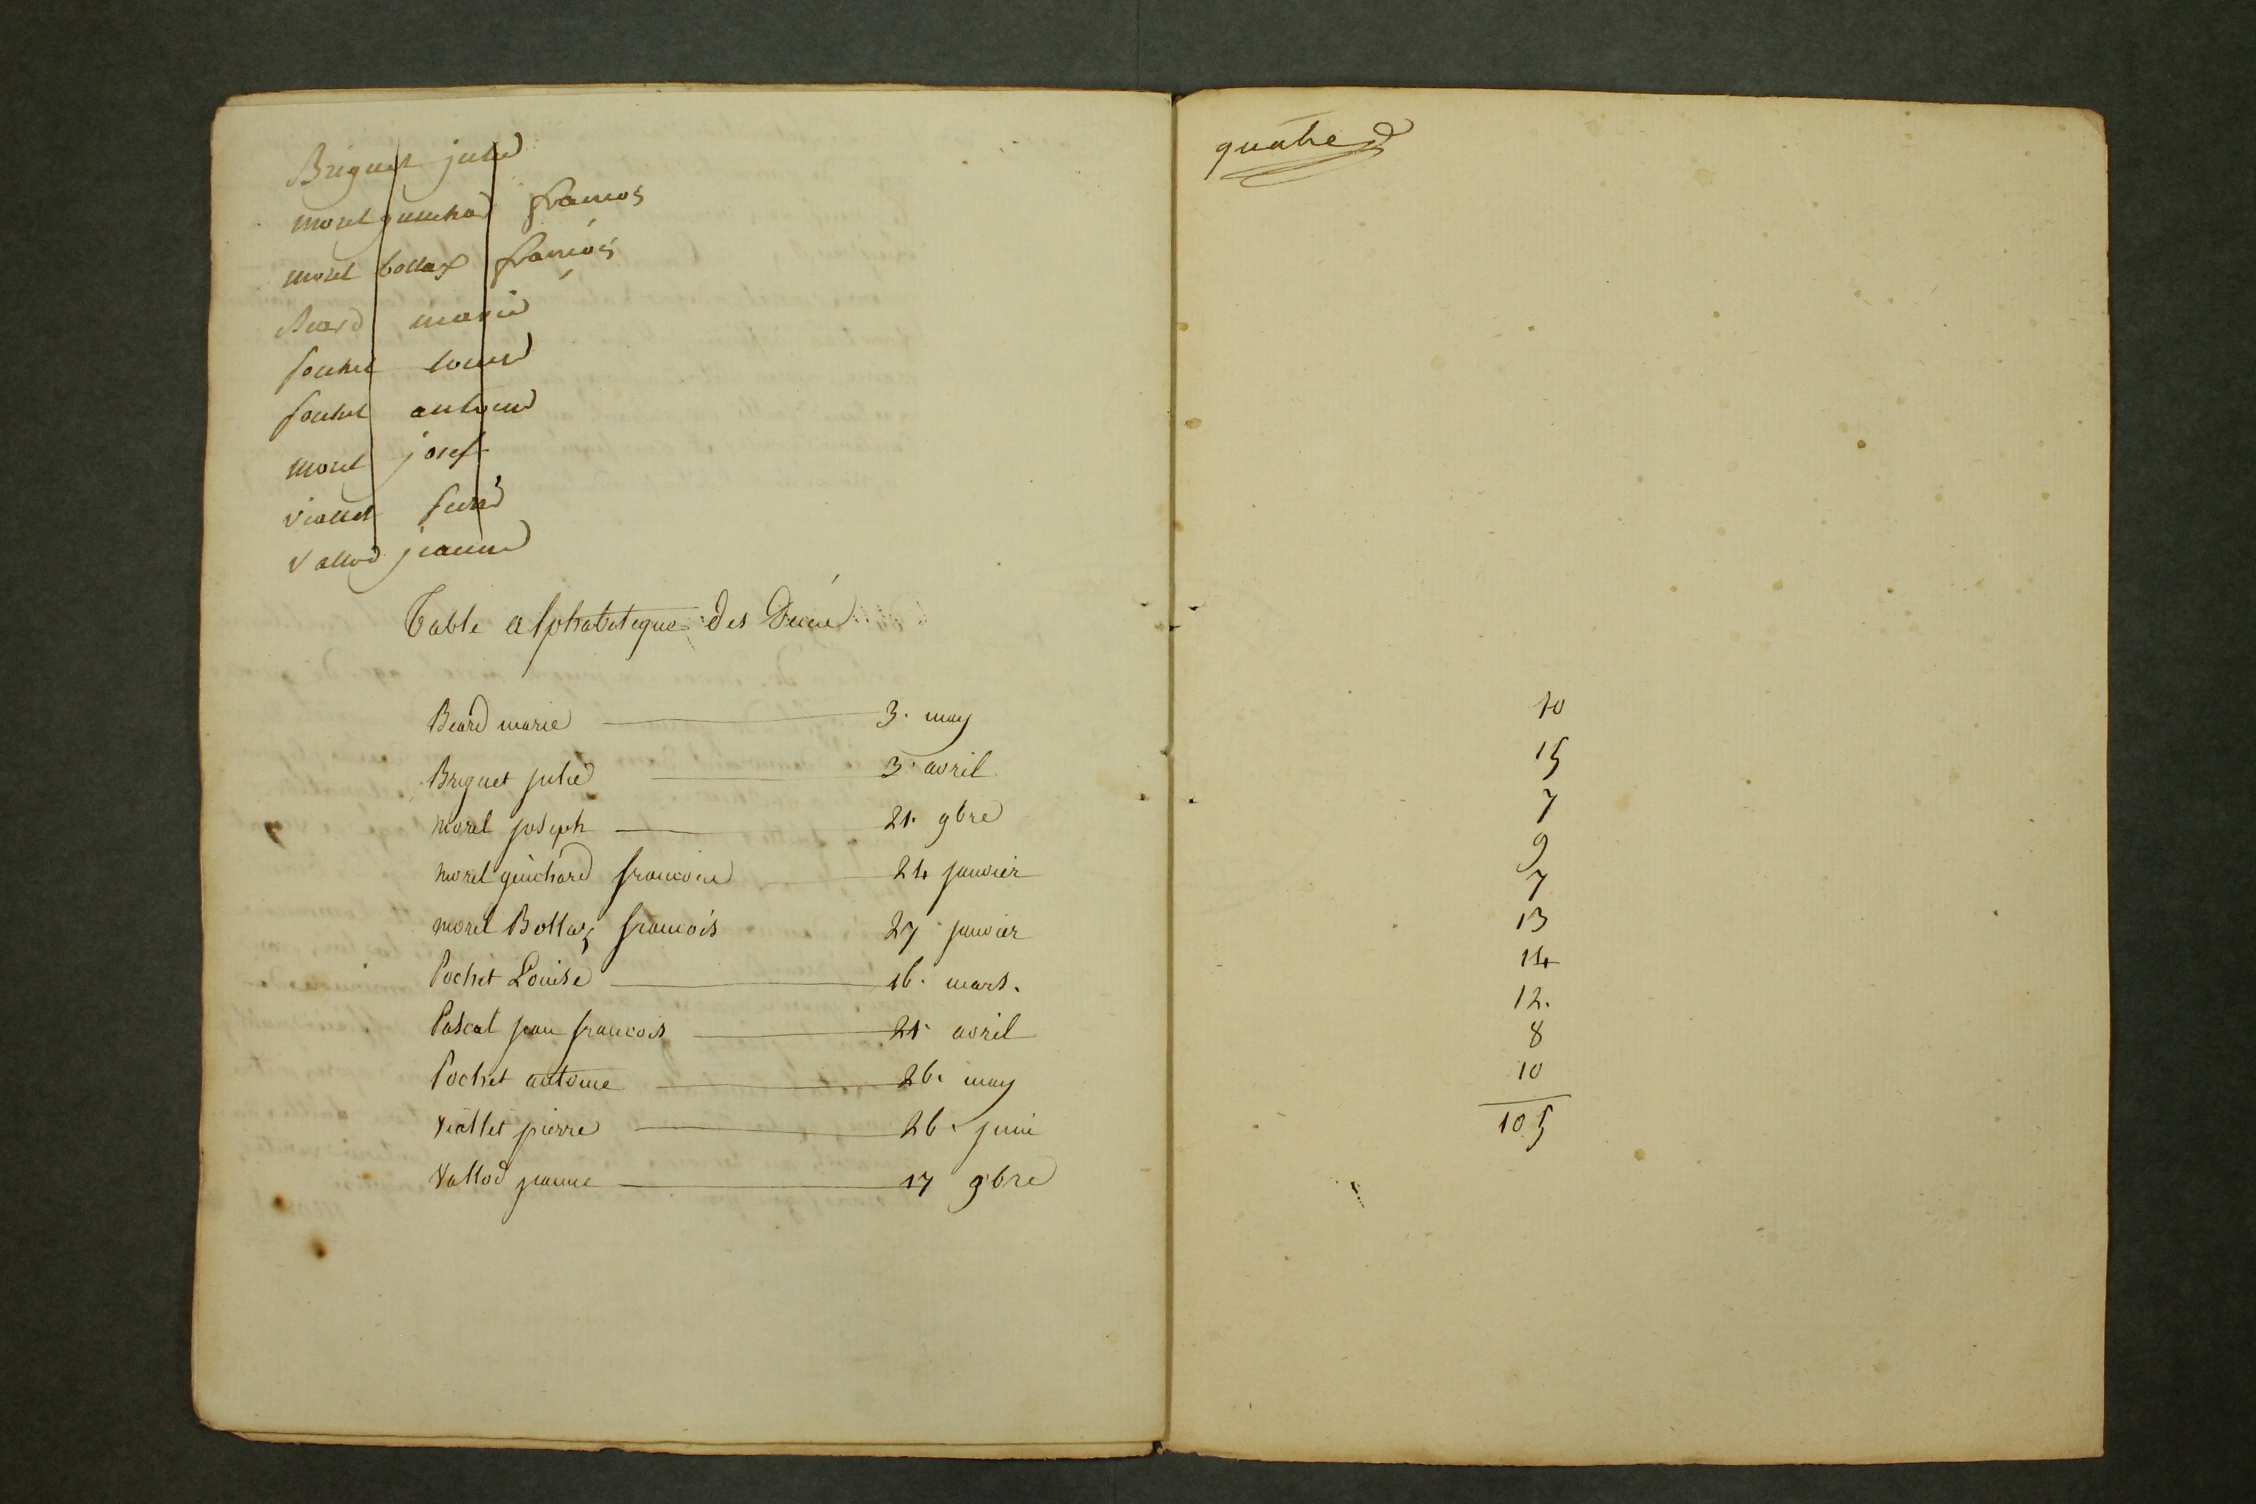 Briguet julie
morel guichad francois
morel bottax francois
Beard marie
pochet louise
pochet antoine
morel josef
viallet pierre
vallod jeanne
Table alphabetique des Décée
Beard marie 3. may
Briguet julie 3. avril
morel joseph 21. 9bre
morel guichard francoise 24 janvier
morel Bottaz francois 27 janvier
Pochet Louise 16. mars.
Pascal jean francois 21. avril
Pochet antoine 26. may
Viallet pierre 26. juin
Vallod jeanne 17 9bre
quatre
10
15
7
9
7
13
14
12.
8
10
105